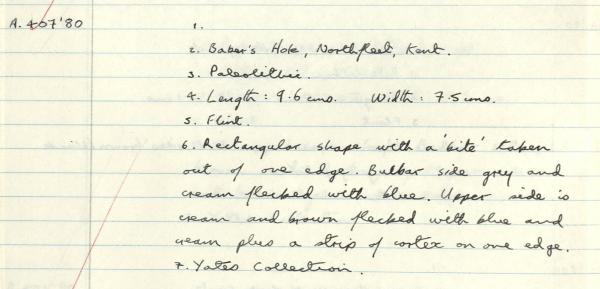 A.407'80
1.
2. Baker's Hole, Northfleet, Kent.
3. Paleolithic.
4. Length: 9.6 cms. Width: 7.5 cms.
5. Flint.
6. Rectangular shape with a 'bite' taken
out of one edge. Bulbar side grey and
cream flecked with blue. Upper side is
cream and brown flecked with blue and
cream plus a strip of cortex on one edge.
7. Yates Collection.